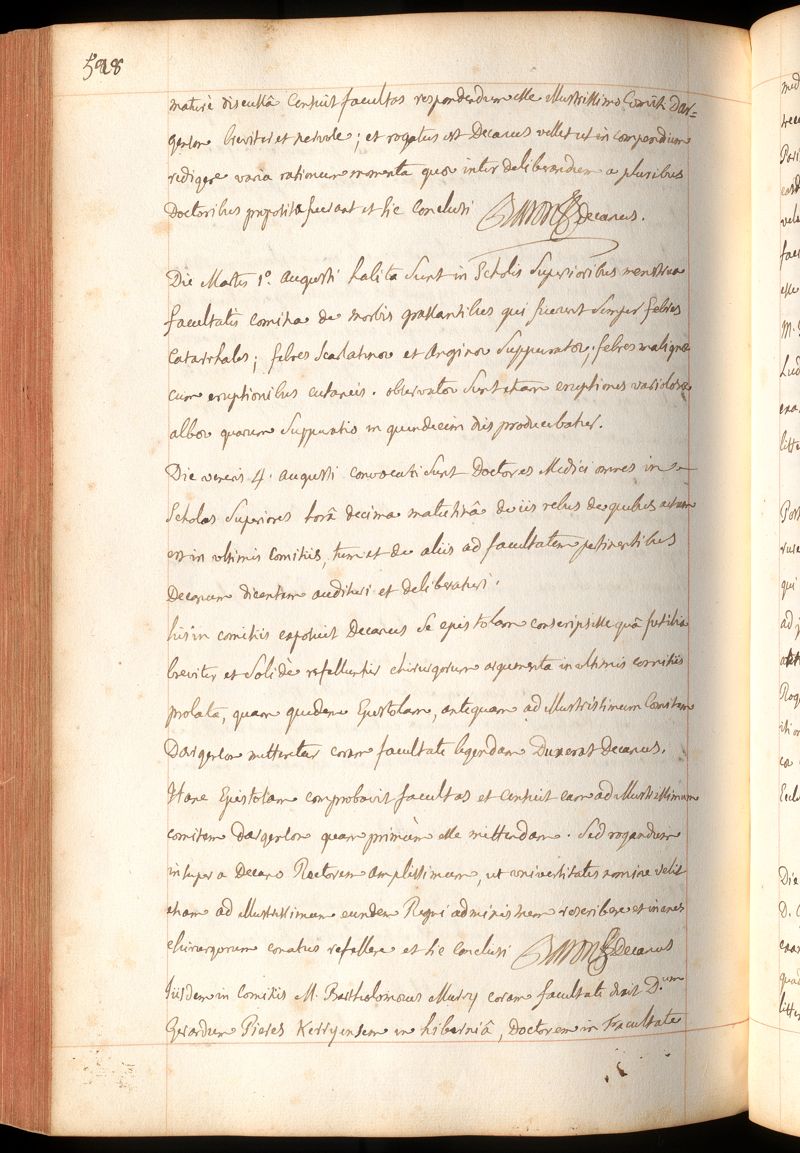 598
maturè discussâ Censuit facultas respondendum esse illustrissimo Comiti Dar=
genson breviter et nervose; et rogatus est Decanus vellet ut in compendium
redigere varia rationum momenta quae inter deliberandum a pluribus
Doctoribus proposita fuerant et sic conclusi Baron Decanus.
Die Martis 1º. augusti habita sunt in Scholis Superioribus menstrua
facultatis comitia de morbis grassantibus qui fuerunt semper febres
Catarrhales; febres Scarlatinae et Anginae Suppuratae; febres malignae
cum eruptionibus cutaneis. observatae sunt etiam eruptiones variolosae
albae quarum Suppuratio in quindecim dis producebatur.
Die veneris 4. augusti convocati sunt Doctores Medici omnes in
Scholas Superiores horâ decima matutinâ de iis rebus de quibus actum
est in ultimis Comitiis, tum et de aliis ad facultatem pertinentibus
Decanum dicentem audituri et deliberaturi.
his in comitiis exposuit Decanus se epistolam conscripsisse quâ futilia
breviter et solidè refelluntur chirurgorum argumenta in ultimis comitiis
prolata, quam quidem Epistolam, antequam ad illustrissimum Comitem
Dargenson mitteretur coram facultate legendam Duxerat Decanus.
Hanc Epistolam comprobavit facultas et censuit eam ad illustrissimum
comitem Dargenson quamprimùm esse mittendam. Sed rogandum
insuper a Decano Rectorem amplissimum, ut universitatis nomine velit
etiam ad illustrissimum eundem Regni administrum rescribere et inanes
chirurgorum conatus refellere et sic conclusi Baron Decanus
Iisdem in Comitiis M. Bartholomaeus Murry coram facultate dixit D.um
Gerardum Pieres Kerryensem in hiberniâ, Doctorem in Facultate